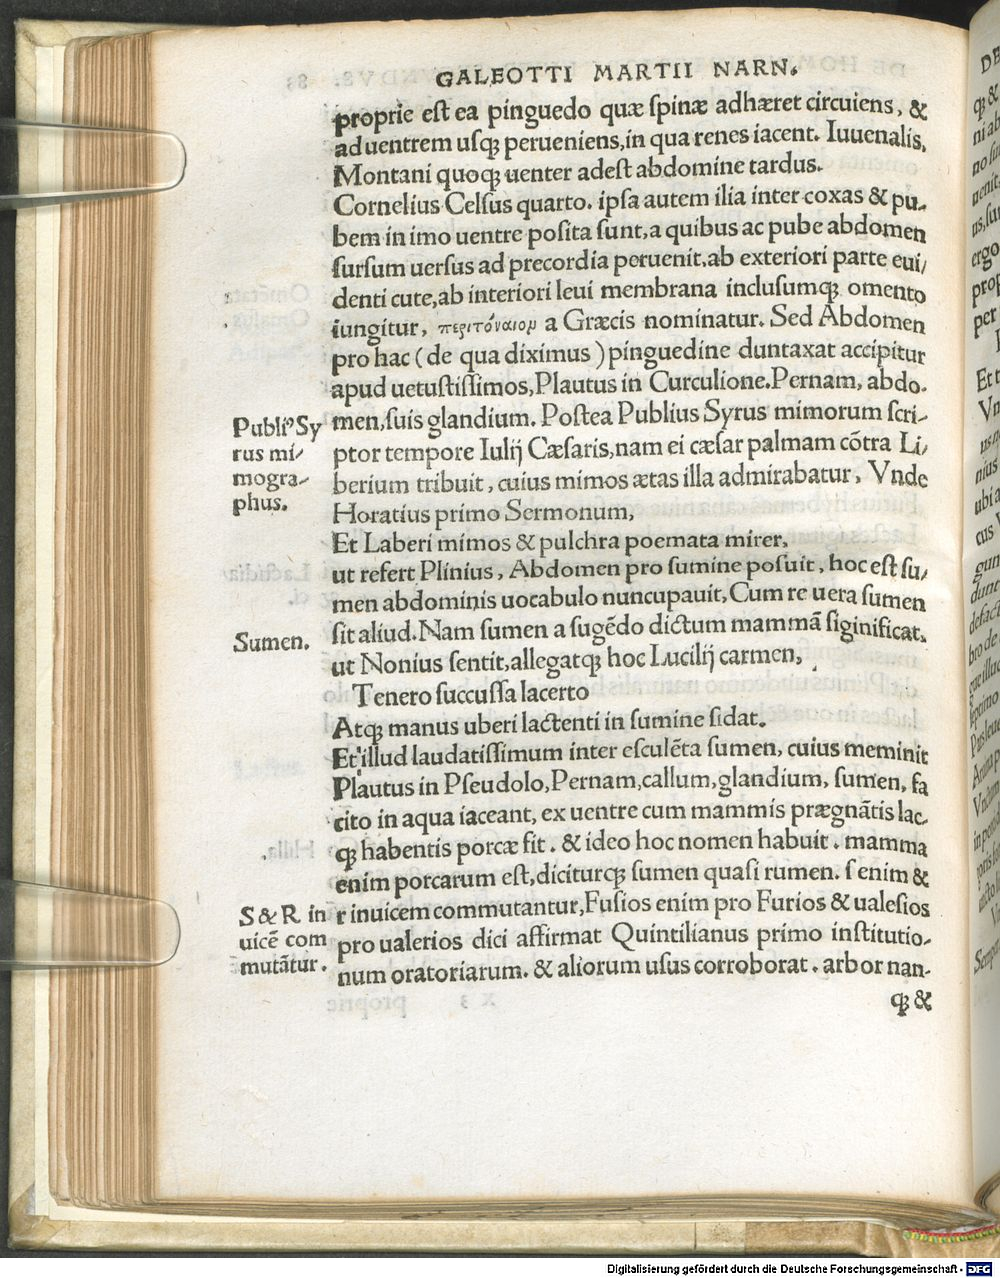 GALEOTTI MARTII NARN.
proprie est ea pinguedo quæ spinæ adhæret circuiens, &
ad uentrem usqꝫ perueniens, in qua renes iacent. Iuuenalis,
Montani quoqꝫ uenter adest abdomine tardus.
Cornelius Celsus quarto. ipsa autem ilia inter coxas & pu-
bem in imo uentre posita sunt, a quibus ac pube abdomen
sursum uersus ad precordia peruenit, ab exteriori parte eui/
denti cute, ab interiori leui membrana inclusumqꝫ omento
iungitur, περιτόναιομ a Græcis nominatur. Sed Abdomen
pro hac (de qua diximus) pinguedine duntaxat accipitur
apud uetustissimos, Plautus in Curculione. Pernam, abdo-
men, suis glandium. Postea Publius Syrus mimorum scri-
ptor tempore Iulij Cæsaris, nam ei cæsar palmam cõtra Li/
berium tribuit, cuius mimos ætas illa admirabatur, Vnde
Horatius primo Sermonum,
Et Laberi mimos & pulchra poemata mirer,
ut refert Plinius, Abdomen pro sumine posuit, hoc est su/
men abdominis uocabulo nuncupauit, Cum re uera sumen
sit aliud. Nam sumen a sugẽdo dictum mammã siginificat.
ut Nonius sentit, allegatqꝫ hoc Lucilij carmen,
Tenero succussa lacerto
Atqꝫ manus uberi lactenti in sumine sidat.
Et illud laudatissimum inter esculẽta sumen, cuius meminit
Plautus in Pseudolo, Pernam, callum, glandium, sumen, fa
cito in aqua iaceant, ex uentre cum mammis prægnãtis lac-
qꝫ habentis porcæ fit. & ideo hoc nomen habuit. mamma
enim porcarum est, diciturqꝫ sumen quasi rumen. s enim &
r inuicem commutantur, Fusios enim pro Furios & ualesios
pro ualerios dici affirmat Quintilianus primo institutio-
num oratoriarum. & aliorum usus corroborat. arbor nan-
qꝫ &
Publiꝰ Sy
rus mi/
mogra-
phus.
Sumen.
S & R in
uicẽ com
mutãtur.
Digitalisierung gefördert durch die Deutsche Forschungsgemeinschaft - DFG